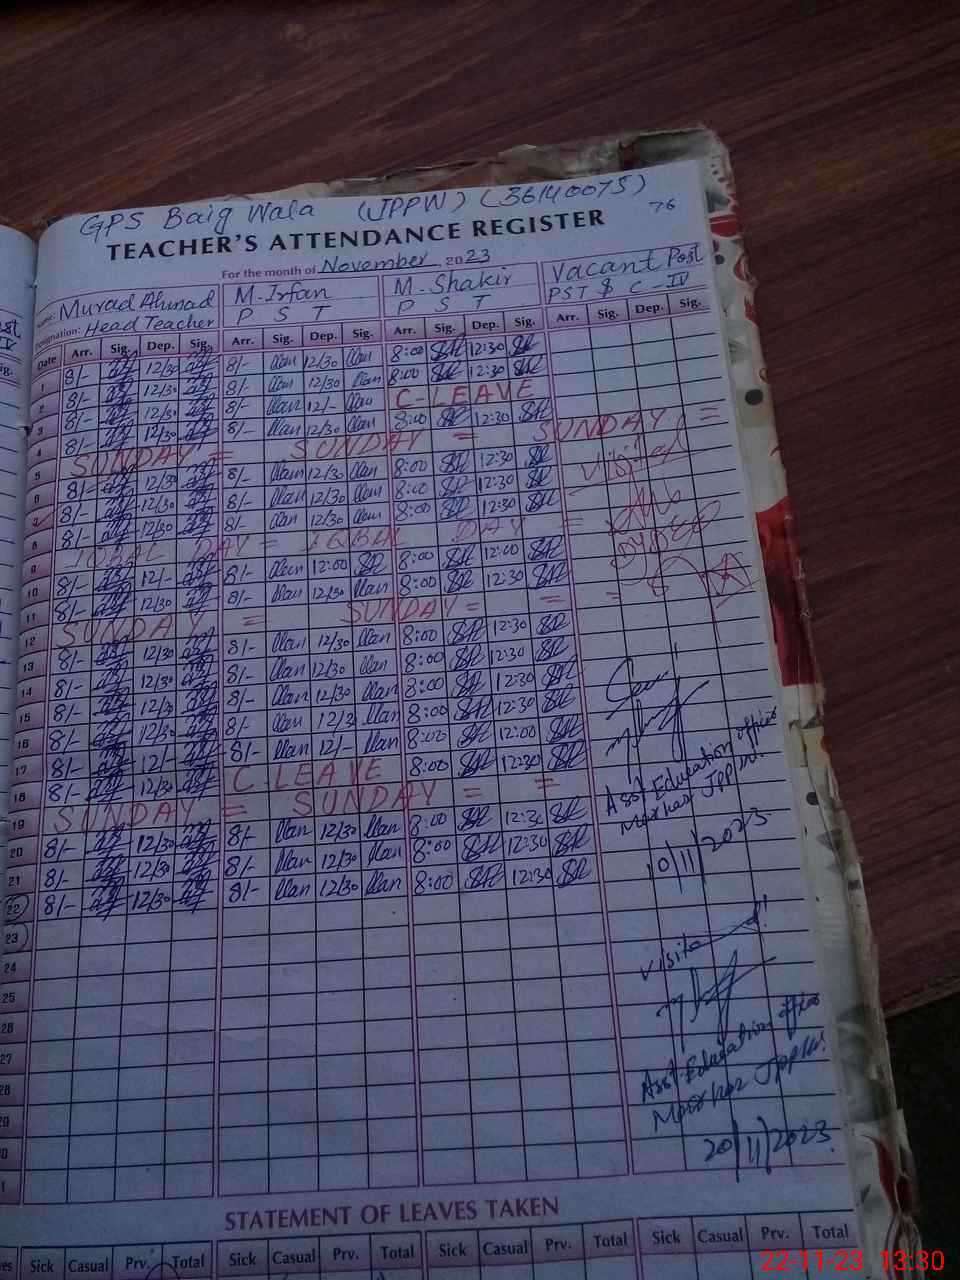 GPS Baig Wala (JPPW) (36140075)
76
TEACHER'S ATTENDANCE REGISTER
For the month of November 2023
Murad Ahmad M. Irfan M. Shakir Vacant Post
Designation: Head Teacher P S T P S T PST $ C-IV
Date Arr. Sig. Dep. Sig. Arr. Sig. Dep. Sig. Arr. Sig. Dep. Sig. Arr. Sig. Dep. Sig.
1 8/- 12/30 8/- 12/30 8:00 12:30
2 8/- 12/30 8/- 12/30 8:00 12:30
3 8/- 12/30 8/- 12/- C-LEAVE
4 8/- 12/30 8/- 12/30 8:00 12:30
5 SUNDAY = SUNDAY = SUNDAY =
6 8/- 12/30 8/- 12/30 8:00 12:30
7 8/- 12/30 8/- 12/30 8:00 12:30
8 8/- 12/30 8/- 12/30 8:00 12:30
9 IQBAL DAY = IQBAL DAY =
10 8/- 12/- 8/- 12:00 8:00 12:00
11 8/- 12/30 8/- 12/30 8:00 12:30
12 SUNDAY = SUNDAY = = =
13 8/- 12/30 8/- 12/30 8:00 12:30
14 8/- 12/30 8/- 12/30 8:00 12:30
15 8/- 12/30 8/- 12/30 8:00 12:30
16 8/- 12/30 8/- 12/3 8:00 12:30
17 8/- 12/- 8/- 12/- 8:00 12:00
18 8/- 12/30 C LEAVE 8:00 12:30
19 SUNDAY = SUNDAY = =
20 8/- 12/30 8/- 12/30 8:00 12:30
21 8/- 12/30 8/- 12/30 8:00 12:30
22 8/- 12/30 8/- 12/30 8:00 12:30
23
24
25
26
27
28
29
30
31
Visited
DYDEO
Asst. Education officer
Markaz JPPW.
10/11/2023
Visited!
Asst. Education officer
Markaz JPPW.
20/11/2023
STATEMENT OF LEAVES TAKEN
Sick Casual Prv. Total Sick Casual Prv. Total Sick Casual Prv. Total Sick Casual Prv. Total
22-11-23 13:30